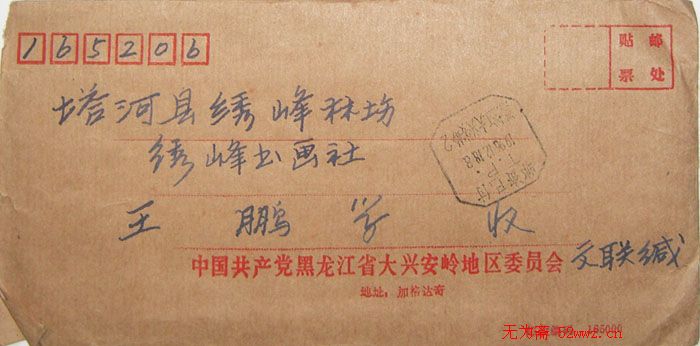 165206
贴邮
票处
塔河县绣峰林场
绣峰书画社
王鹏学 收
中国共产党黑龙江省大兴安岭地区委员会 文联缄
地址：加格达奇
165000
无为斋 52wwz.cn